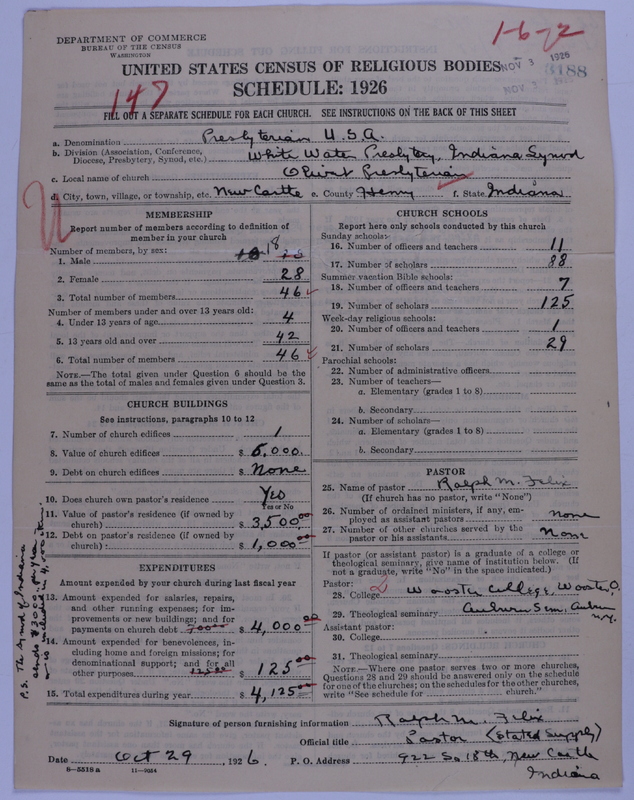 DEPARTMENT OF COMMERCE
BUREAU OF THE CENSUS
WASHINGTON
1-6-72
NOV 3 1926
NOV 3
3188
147
UNITED STATES CENSUS OF RELIGIOUS BODIES
SCHEDULE: 1926
FILL OUT A SEPARATE SCHEDULE FOR EACH CHURCH. SEE INSTRUCTIONS ON THE BACK OF THIS SHEET
a. Denomination Presbyterian U.S.A.
b. Division (Association, Conference, Diocese, Presbytery, Synod, etc.) White Water Presbytery, Indiana Synod
c. Local name of church Olivet Presbyterian
d. City, town, village, or township, etc. New Castle e. County Henry f. State Indiana
U
MEMBERSHIP
Report number of members according to definition of
member in your church
Number of members, by sex:
1. Male 18
2. Female 28
3. Total number of members 46
Number of members under and over 13 years old:
4. Under 13 years of age 4
5. 13 years old and over 42
6. Total number of members 46
NOTE.—The total given under Question 6 should be
same as the total of males and females given under Question 3.
CHURCH BUILDINGS
See instructions, paragraphs 10 to 12
7. Number of church edifices 1
8. Value of church edifices $ 5,000.
9. Debt on church edifices $ None
10. Does church own pastor's residence Yes
Yes or No
11. Value of pastor's residence (if owned by
church) $ 3,500.00
12. Debt on pastor's residence (if owned by
church) : $ 1,000.00
EXPENDITURES
Amount expended by your church during last fiscal year
13. Amount expended for salaries, repairs,
and other running expenses; for im-
provements or new buildings; and for
payments on church debt $ 4,000.00
14. Amount expended for benevolences, in-
cluding home and foreign missions; for
denominational support; and for all
other purposes $ 125.00
15. Total expenditures during year $ 4,125.00
P.S. The Synod of Indiana
sends $3000. per year
is included in 4,000 item.
CHURCH SCHOOLS
Report here only schools conducted by this church
Sunday schools:
16. Number of officers and teachers 11
17. Number of scholars 88
Summer vacation Bible schools:
18. Number of officers and teachers 7
19. Number of scholars 125
Week-day religious schools:
20. Number of officers and teachers 1
21. Number of scholars 29
Parochial schools:
22. Number of administrative officers
23. Number of teachers—
a. Elementary (grades 1 to 8)
b. Secondary
24. Number of scholars—
a. Elementary (grades 1 to 8)
b. Secondary
PASTOR
25. Name of pastor Ralph M. Felix
(If church has no pastor, write "None")
26. Number of ordained ministers, if any, em-
ployed as assistant pastors None
27. Number of other churches served by the
pastor or his assistants None
If pastor (or assistant pastor) is a graduate of a college or
theological seminary, give name of institution below. (If
not a graduate, write "No" in the space indicated.)
Pastor:
28. College 2 Wooster College, Wooster, O.
29. Theological seminary Auburn Sem, Auburn N.Y.
Assistant pastor:
30. College
31. Theological seminary
NOTE.—Where one pastor serves two or more churches,
Questions 28 and 29 should be answered only on the schedule
for one of the churches; on the schedules for the other churches,
write "See schedule for church."
Signature of person furnishing information Ralph M. Felix
Official title Pastor (Stated Supply)
Date Oct 29, 1926. P. O. Address 922 So 18th, New Castle
Indiana
8—5518 a 11—9054